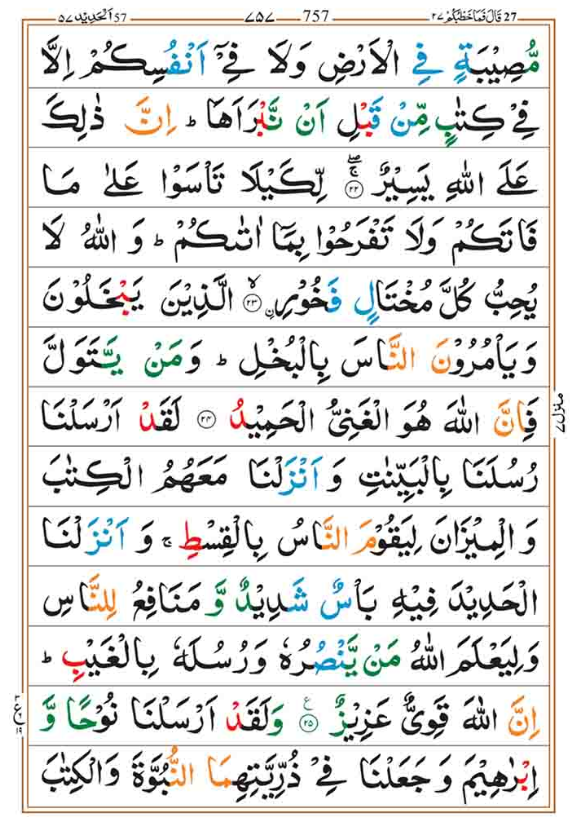 27 قَالَ فَمَا خَطْبُكُمْ ٢٧ 757 ٧٥٧ 57 اَلْحَدِيْد ٥٧
مُّصِيْبَةٍ فِي الْاَرْضِ وَلَا فِيْٓ اَنْفُسِكُمْ اِلَّا
فِيْ كِتٰبٍ مِّنْ قَبْلِ اَنْ نَّبْرَاَهَا ؕ اِنَّ ذٰلِكَ
عَلَى اللّٰهِ يَسِيْرٌ ۚۖ ۝٢٢ لِّكَيْلَا تَاْسَوْا عَلٰى مَا
فَاتَكُمْ وَلَا تَفْرَحُوْا بِمَآ اٰتٰىكُمْ ؕ وَ اللّٰهُ لَا
يُحِبُّ كُلَّ مُخْتَالٍ فَخُوْرِۣ ۙ ۝٢٣ الَّذِيْنَ يَبْخَلُوْنَ
وَيَاْمُرُوْنَ النَّاسَ بِالْبُخْلِ ؕ وَمَنْ يَّتَوَلَّ
فَاِنَّ اللّٰهَ هُوَ الْغَنِيُّ الْحَمِيْدُ ۝٢٤ لَقَدْ اَرْسَلْنَا
رُسُلَنَا بِالْبَيِّنٰتِ وَ اَنْزَلْنَا مَعَهُمُ الْكِتٰبَ
وَ الْمِيْزَانَ لِيَقُوْمَ النَّاسُ بِالْقِسْطِ ۚ وَ اَنْزَلْنَا
الْحَدِيْدَ فِيْهِ بَاْسٌ شَدِيْدٌ وَّ مَنَافِعُ لِلنَّاسِ
وَلِيَعْلَمَ اللّٰهُ مَنْ يَّنْصُرُهٗ وَرُسُلَهٗ بِالْغَيْبِ ؕ
اِنَّ اللّٰهَ قَوِيٌّ عَزِيْزٌ ۝٢٥ ع وَلَقَدْ اَرْسَلْنَا نُوْحًا وَّ
اِبْرٰهِيْمَ وَ جَعَلْنَا فِيْ ذُرِّيَّتِهِمَا النُّبُوَّةَ وَالْكِتٰبَ
منزل ٧